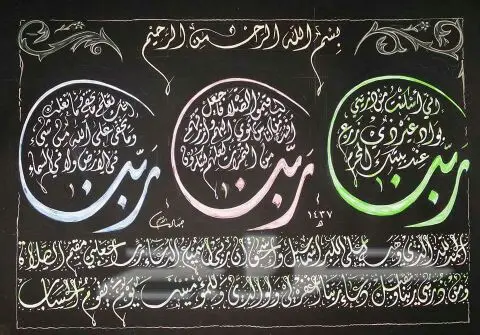 بسم الله الرحمن الرحيم
ربنا
اني اسكنت من ذريتي
بواد غير ذي زرع
عند بيتك المحرم
ربنا
ليقيموا الصلاة فاجعل
افئدة من الناس تهوي اليهم وارزقهم
من الثمرات لعلهم يشكرون
ربنا
انك تعلم ما نخفي وما نعلن
وما يخفى على الله من شيء
في الارض ولا في السماء
١٤٣٧ هـ
الحمد لله الذي وهب لي على الكبر اسماعيل واسحاق ان ربي لسميع الدعاء رب اجعلني مقيم الصلاة
ومن ذريتي ربنا وتقبل دعاء ربنا اغفر لي ولوالدي وللمؤمنين يوم يقوم الحساب